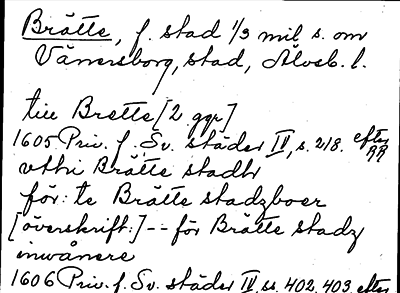 Brätte, f. stad 1/3 mil s. om
Vänersborg, stad, Älvsb. l.
till Brette [2 ggr]
1605 Priv. f. Sv. städer IV, s. 218. efter RR
vthi Brätte stadh
för: te Brätte stadzboer
[överskrift:] -- för Brätte stadz
inwånere
1606 Priv. f. Sv. städer IV, ss. 402, 403 efter